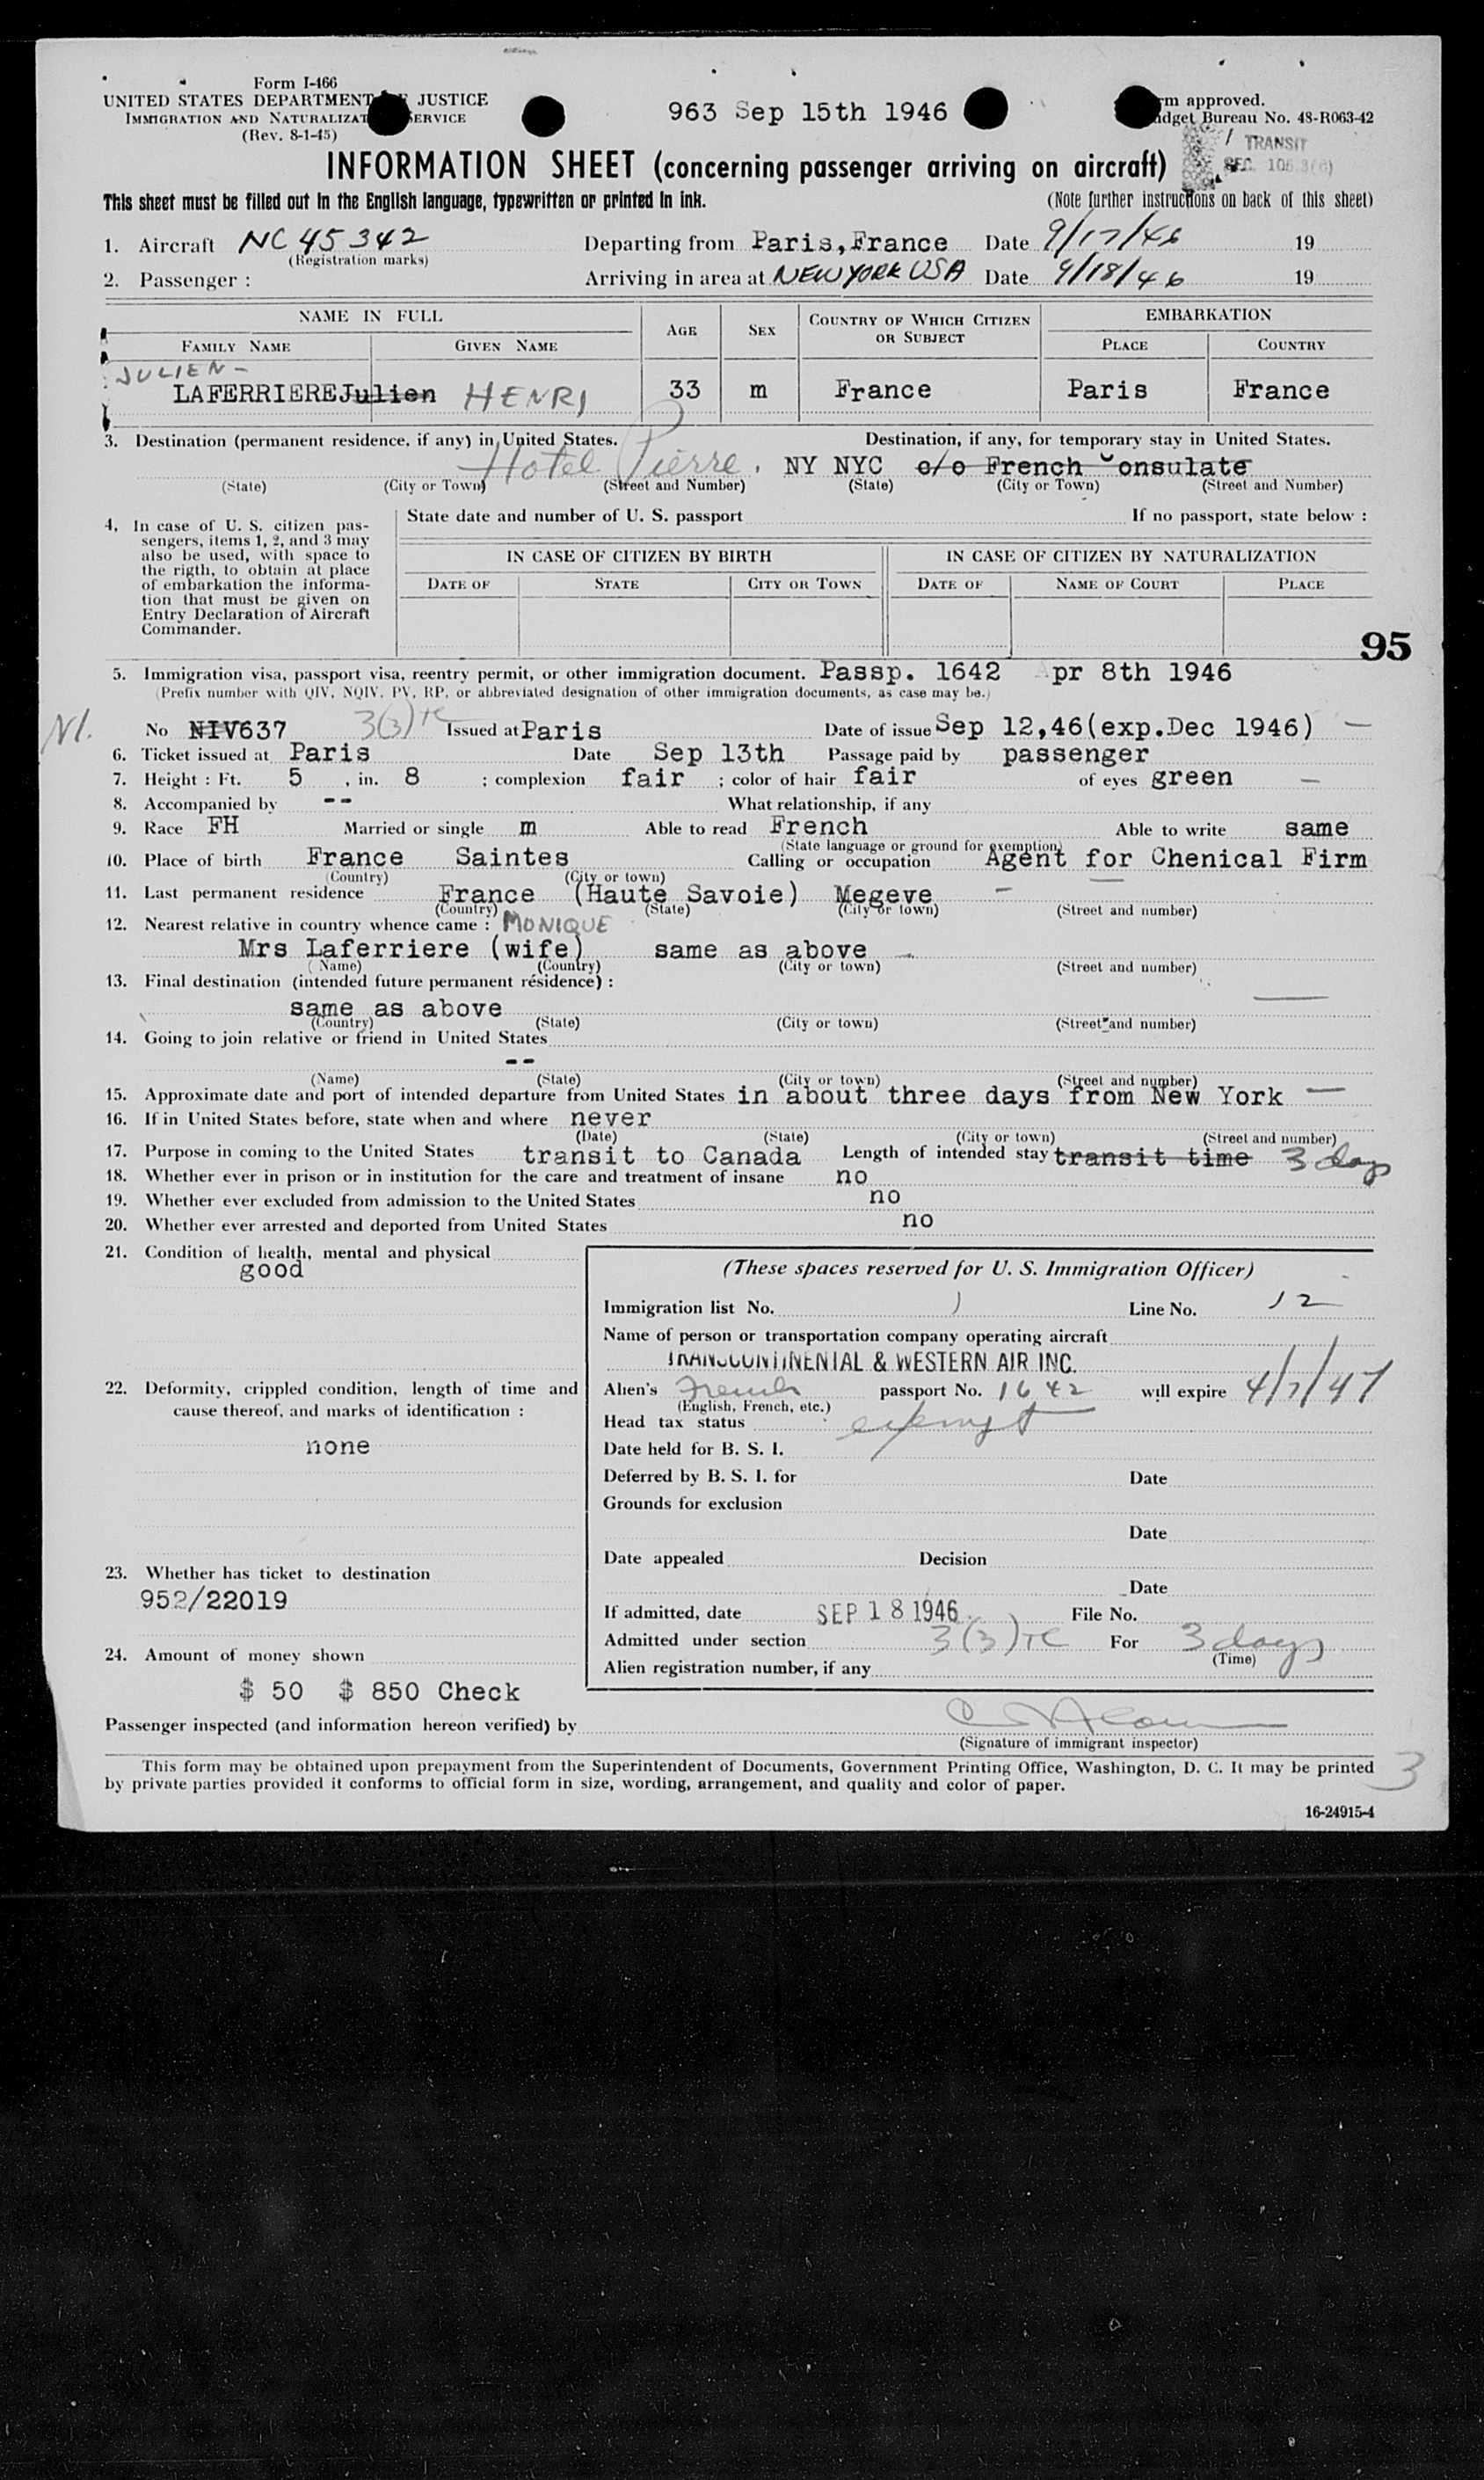 Form I-466
UNITED STATES DEPARTMENT JUSTICE
IMMIGRATION AND NATURALIZAT ERVICE
(Rev. 8-1-45)
963 Sep 15th 1946
rm approved.
dget Bureau No. 43-R063-42
TRANSIT
SEC. 106.3(6)
INFORMATION SHEET (concerning passenger arriving on aircraft)
This sheet must be filled out in the English language, typewritten or printed in ink. (Note further instructions on back of this sheet)
1. Aircraft NC 45342 Departing from Paris, France Date 9/17/46 19
(Registration marks)
2. Passenger : Arriving in area at NEW YORK USA Date 9/18/46 19
NAME IN FULL AGE SEX COUNTRY OF WHICH CITIZEN OR SUBJECT EMBARKATION
FAMILY NAME GIVEN NAME PLACE COUNTRY
JULIEN -
LAFERRIERE Julien HENRI 33 m France Paris France
3. Destination (permanent residence, if any) in United States. Destination, if any, for temporary stay in United States.
Hotel Pierre, NY NYC c/o French Consulate
(State) (City or Town) (Street and Number) (State) (City or Town) (Street and Number)
4. In case of U. S. citizen pas-
sengers, items 1, 2, and 3 may
also be used, with space to
the rigth, to obtain at place
of embarkation the informa-
tion that must be given on
Entry Declaration of Aircraft
Commander.
State date and number of U. S. passport If no passport, state below :
IN CASE OF CITIZEN BY BIRTH IN CASE OF CITIZEN BY NATURALIZATION
DATE OF STATE CITY OR TOWN DATE OF NAME OF COURT PLACE
95
5. Immigration visa, passport visa, reentry permit, or other immigration document. Passp. 1642 Apr 8th 1946
(Prefix number with QIV, NQIV, PV, RP, or abbreviated designation of other immigration documents, as case may be.)
NI. No NIV637 3(3)TC Issued at Paris Date of issue Sep 12,46(exp.Dec 1946) —
6. Ticket issued at Paris Date Sep 13th Passage paid by passenger
7. Height : Ft. 5 , in. 8 ; complexion fair ; color of hair fair of eyes green —
8. Accompanied by -- What relationship, if any
9. Race FH Married or single m Able to read French Able to write same
(State language or ground for exemption)
10. Place of birth France Saintes Calling or occupation Agent for Chenical Firm
(Country) (City or town)
11. Last permanent residence France (Haute Savoie) Megeve —
(Country) (State) (City or town) (Street and number)
12. Nearest relative in country whence came : MONIQUE
Mrs Laferriere (wife) same as above
(Name) (Country) (City or town) (Street and number)
13. Final destination (intended future permanent résidence) :
same as above
(Country) (State) (City or town) (Street and number)
14. Going to join relative or friend in United States
--
(Name) (State) (City or town) (Street and number)
15. Approximate date and port of intended departure from United States in about three days from New York —
16. If in United States before, state when and where never
(Date) (State) (City or town) (Street and number)
17. Purpose in coming to the United States transit to Canada Length of intended stay transit time 3 days
18. Whether ever in prison or in institution for the care and treatment of insane no
19. Whether ever excluded from admission to the United States no
20. Whether ever arrested and deported from United States no
21. Condition of health, mental and physical
good
22. Deformity, crippled condition, length of time and
cause thereof, and marks of identification :
none
23. Whether has ticket to destination
952/22019
24. Amount of money shown
$ 50 $ 850 Check
(These spaces reserved for U. S. Immigration Officer)
Immigration list No. 1 Line No. 12
Name of person or transportation company operating aircraft
TRANSCONTINENTAL & WESTERN AIR INC.
Alien's French passport No. 1642 will expire 4/7/47
(English, French, etc.)
Head tax status exempt
Date held for B. S. I.
Deferred by B. S. I. for Date
Grounds for exclusion
Date
Date appealed Decision
Date
If admitted, date SEP 18 1946 File No.
Admitted under section 3(3)TC For 3 days
(Time)
Alien registration number, if any
Passenger inspected (and information hereon verified) by
(Signature of immigrant inspector)
This form may be obtained upon prepayment from the Superintendent of Documents, Government Printing Office, Washington, D. C. It may be printed
by private parties provided it conforms to official form in size, wording, arrangement, and quality and color of paper.
3
16-24915-4